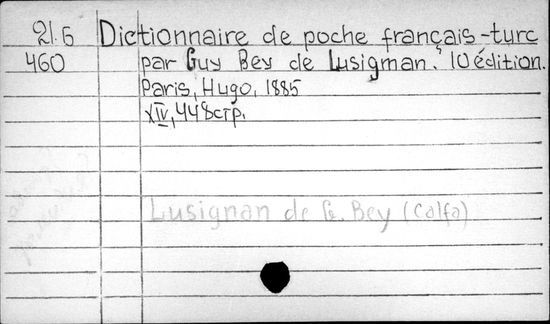 21.б Dictionnaire de poche français-turc
460 par Guy Bey de Lusigman. 10 édition.
Paris, Hugo, 1885
XIV, 448стр.
Lusignan de G. Bey (Calfa)